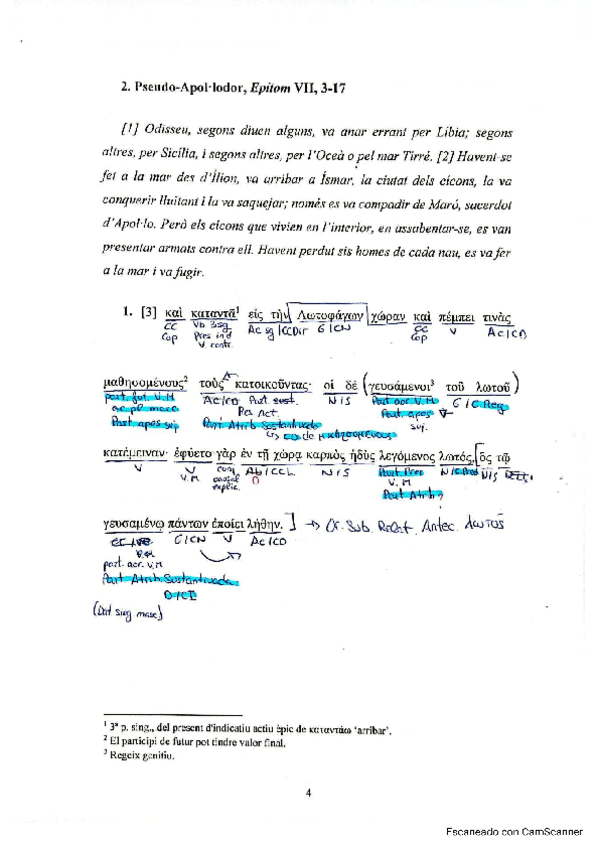 2. Pseudo-Apol·lodor, Epítom VII, 3-17
[1] Odisseu, segons diuen alguns, va anar errant per Líbia; segons
altres, per Sicília, i segons altres, per l'Oceà o pel mar Tirré. [2] Havent-se
fet a la mar des d'Ílion, va arribar a Ísmar, la ciutat dels cícons, la va
conquerir lluitant i la va saquejar; només es va compadir de Maró, sacerdot
d'Apol·lo. Però els cícons que vivien en l'interior, en assabentar-se, es van
presentar armats contra ell. Havent perdut sis homes de cada nau, es va fer
a la mar i va fugir.
1. [3] καὶ καταντᾷ¹ εἰς τὴν Λωτοφάγων χώραν καὶ πέμπει τινὰς
CC Vb 3sg Ac sg/CCDir G/CN CC V Ac/CD
Cop Pres ind Cop
V. contr.
μαθησομένους² τοὺς κατοικοῦντας· οἱ δὲ (γευσάμενοι³ τοῦ λωτοῦ)
part. fut. V.M Ac/CD Part. sust. N/S Part aor V.M G/C Reg
ac pl masc Act. Part apos
Part apos suj Part Atrib Sustantivado suj.
CD de μαθησομένους
κατέμειναν· ἐφύετο γὰρ ἐν τῇ χώρᾳ καρπὸς ἡδὺς λεγόμενος λωτός, [ὃς τῷ
V V conj N/S Part N/S
V.M causal V.M
explic Part Atrib
γευσαμένῳ πάντων ἐποίει λήθην.] → Or. Sub. Relat. Antec. λωτός
G/CN V Ac/CD
part. aor. V.M
Part Atrib. Sustantivado
D/CI
(Dat sing masc)
¹ 3ª p. sing., del present d'indicatiu actiu èpic de καταντάω 'arribar'.
² El participi de futur pot tindre valor final.
³ Regeix genitiu.
4
Escaneado con CamScanner